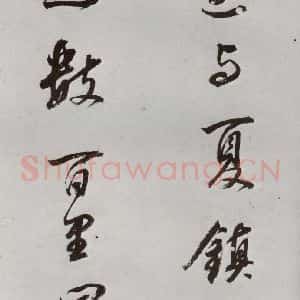 与夏鎮
數百里
Shufawang.CN